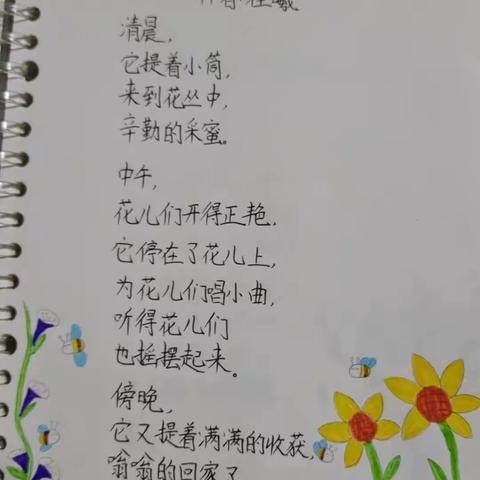 清晨，
它提着小筒，
来到花丛中，
辛勤的采蜜。
中午，
花儿们开得正艳，
它停在了花儿上，
为花儿们唱小曲，
听得花儿们
也摇摆起来。
傍晚，
它又提着满满的收获，
嗡嗡的回家了